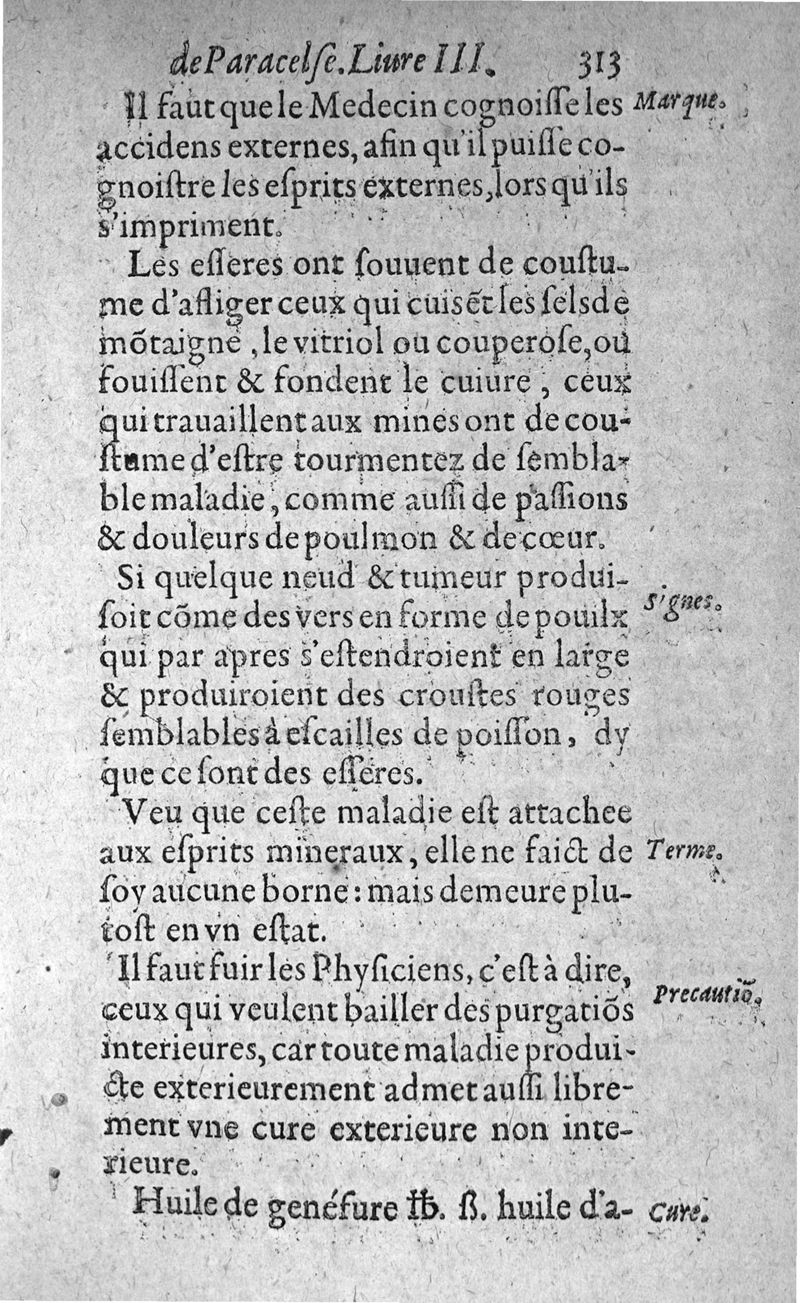 de Paracelſe. Liure III. 313
Il faut que le Medecin cognoiſſe les Marque.
accidens externes, afin qu'il puiſſe co-
gnoiſtre les eſprits externes, lors qu'ils
s'impriment.
Les eſſeres ont ſouuent de couſtu-
me d'afliger ceux qui cuisẽt les ſels de
mõtaigne, le vitriol ou couperoſe, ou
fouiſſent & fondent le cuiure, ceux
qui trauaillent aux mines ont de cou-
ſtume d'eſtre tourmentez de ſembla-
ble maladie, comme auſſi de paſſions
& douleurs de poulmon & de cœur.
Si quelque neud & tumeur produi-
ſoit cõme des vers en forme de pouilx Signes.
qui par apres s'eſtendroient en large
& produiroient des crouſtes rouges
ſemblables à eſcailles de poiſſon, dy
que ce ſont des eſſeres.
Veu que ceſte maladie eſt attachee
aux eſprits mineraux, elle ne faict de Terme.
ſoy aucune borne: mais demeure plu-
toſt en vn eſtat.
Il faut fuir les Phyſiciens, c'eſt à dire,
ceux qui veulent bailler des purgatiõs Precautiõ.
interieures, car toute maladie produi-
cte exterieurement admet auſſi libre-
ment vne cure exterieure non inte-
rieure.
Huile de genéſure ℔. ß. huile d'a- Cure.